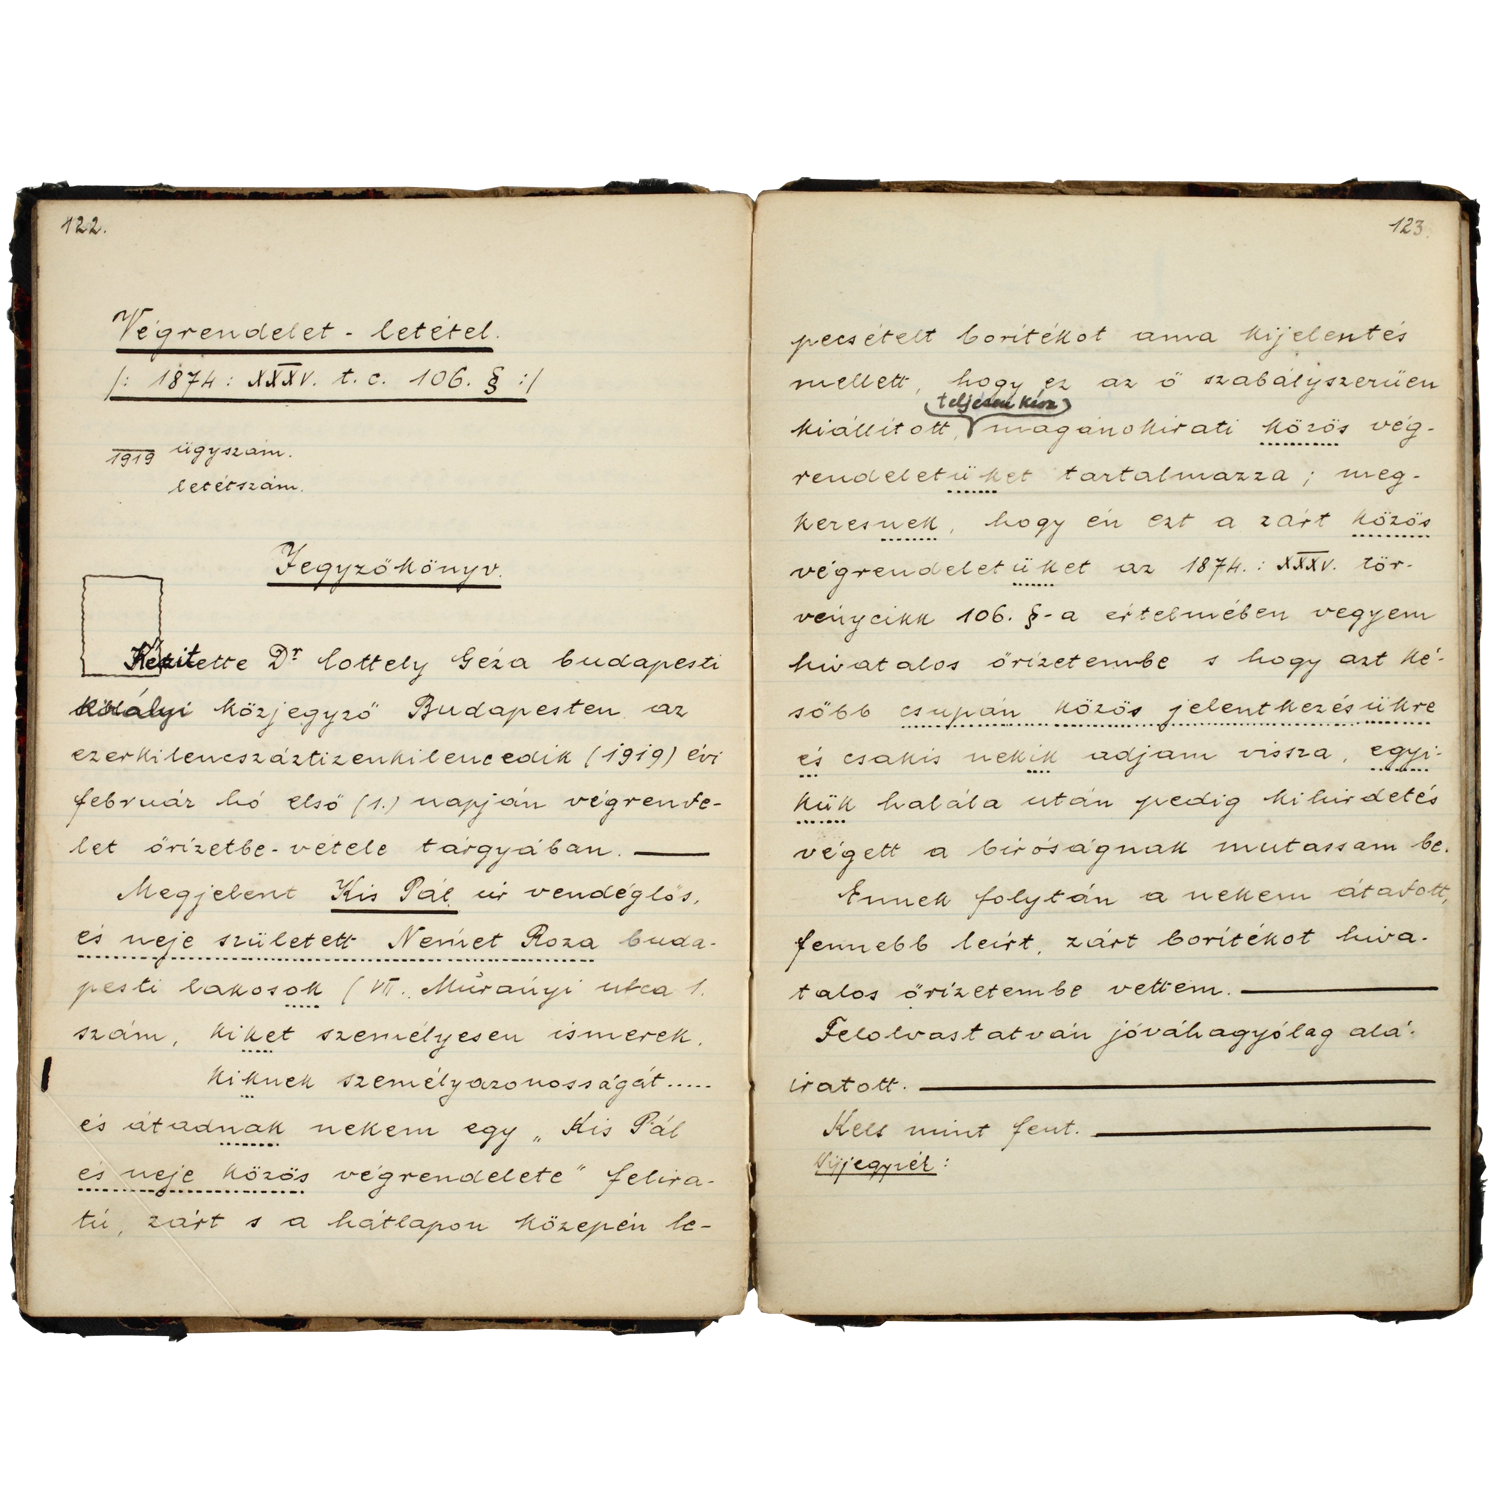 122.
Végrendelet - letétel.
/: 1874: XXXV. t. c. 106. § :/
1919 ügyszám.
letétszám.
Jegyzőkönyv.
Készítette Dr Cottely Géza budapesti
királyi közjegyző Budapesten az
ezerkilencszáztizenkilencedik (1919) évi
február hó első (1.) napján végrende-
let őrizetbe-vétele tárgyában.
Megjelent Kis Pál úr vendéglős,
és neje született Német Roza buda-
pesti lakosok (VII. Murányi utca 1.
szám, kiket személyesen ismerek.
kiknek személyazonosságát.....
és átadnak nekem egy „Kis Pál
és neje közös végrendelete" felira-
tú, zárt s a hátlapon közepén le-
123.
pecsételt borítékot ama kijelentés
mellett, hogy ez az ő szabályszerűen
teljesen kész
kiállított, magánokirati közös vég-
rendeletüket tartalmazza; meg-
keresnek, hogy én ezt a zárt közös
végrendeletüket az 1874.: XXXV. tör-
vénycikk 106. §-a értelmében vegyem
hivatalos őrizetembe s hogy azt ké-
sőbb csupán közös jelentkezésükre
és csakis nekik adjam vissza, egyi-
kük halála után pedig kihirdetés
végett a bíróságnak mutassam be.
Ennek folytán a nekem átadott,
fennebb leírt, zárt borítékot hiva-
talos őrizetembe vettem.
Felolvastatván jóváhagyólag alá-
iratott.
Kelt mint fent.
Díjjegyzék: